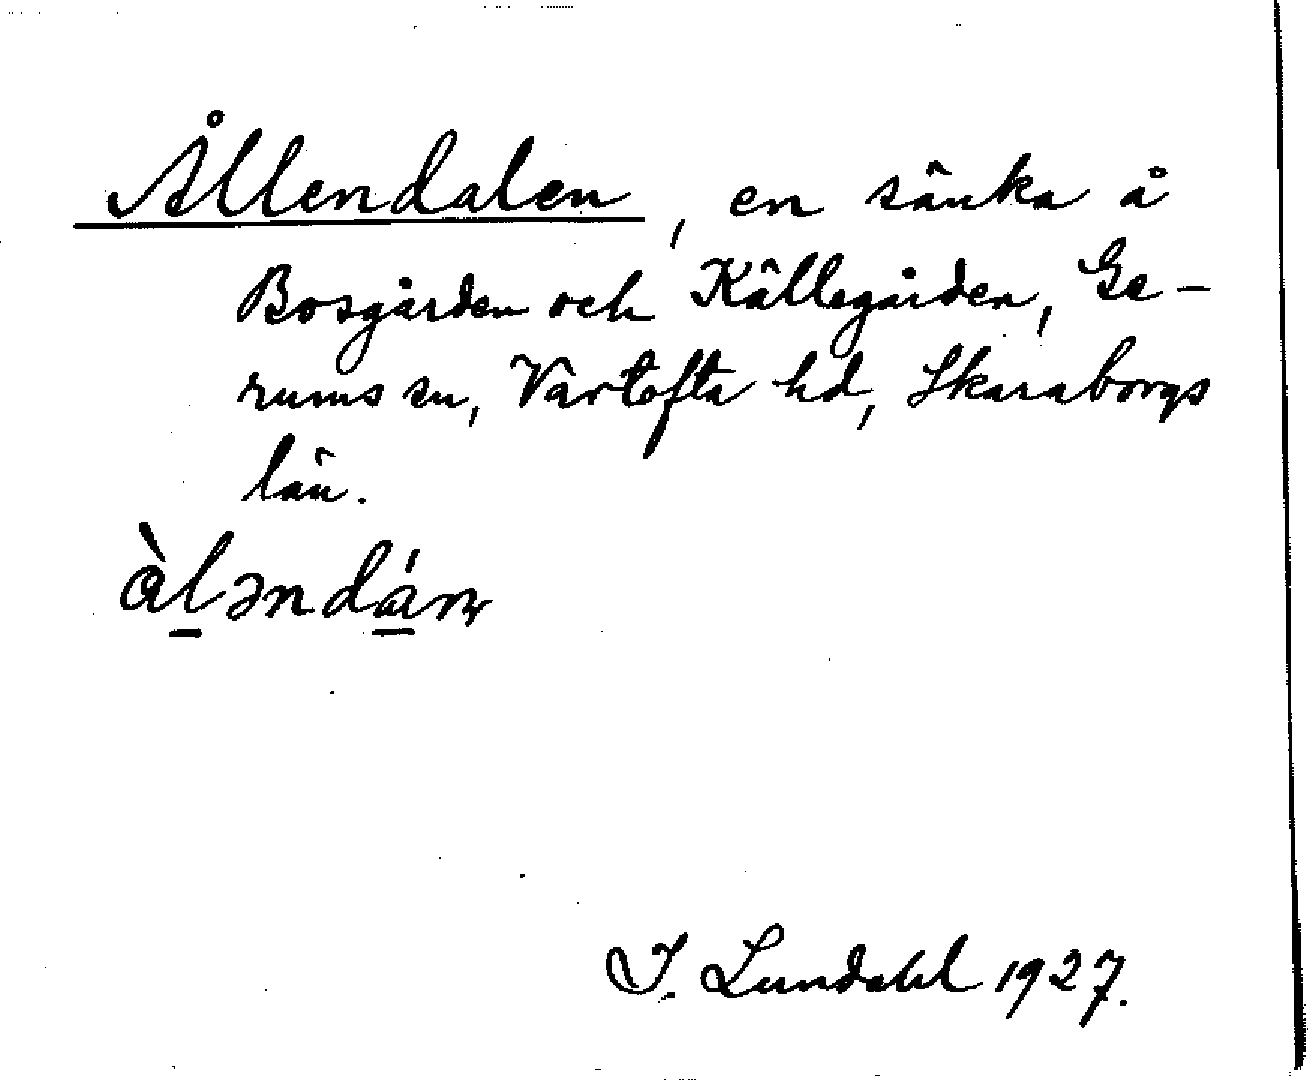 Ållendalen, en sänka å
Bosgården och Källegården, Ge-
rums sn, Vartofta hd, Skaraborgs
län.
I. Lundahl 1927.